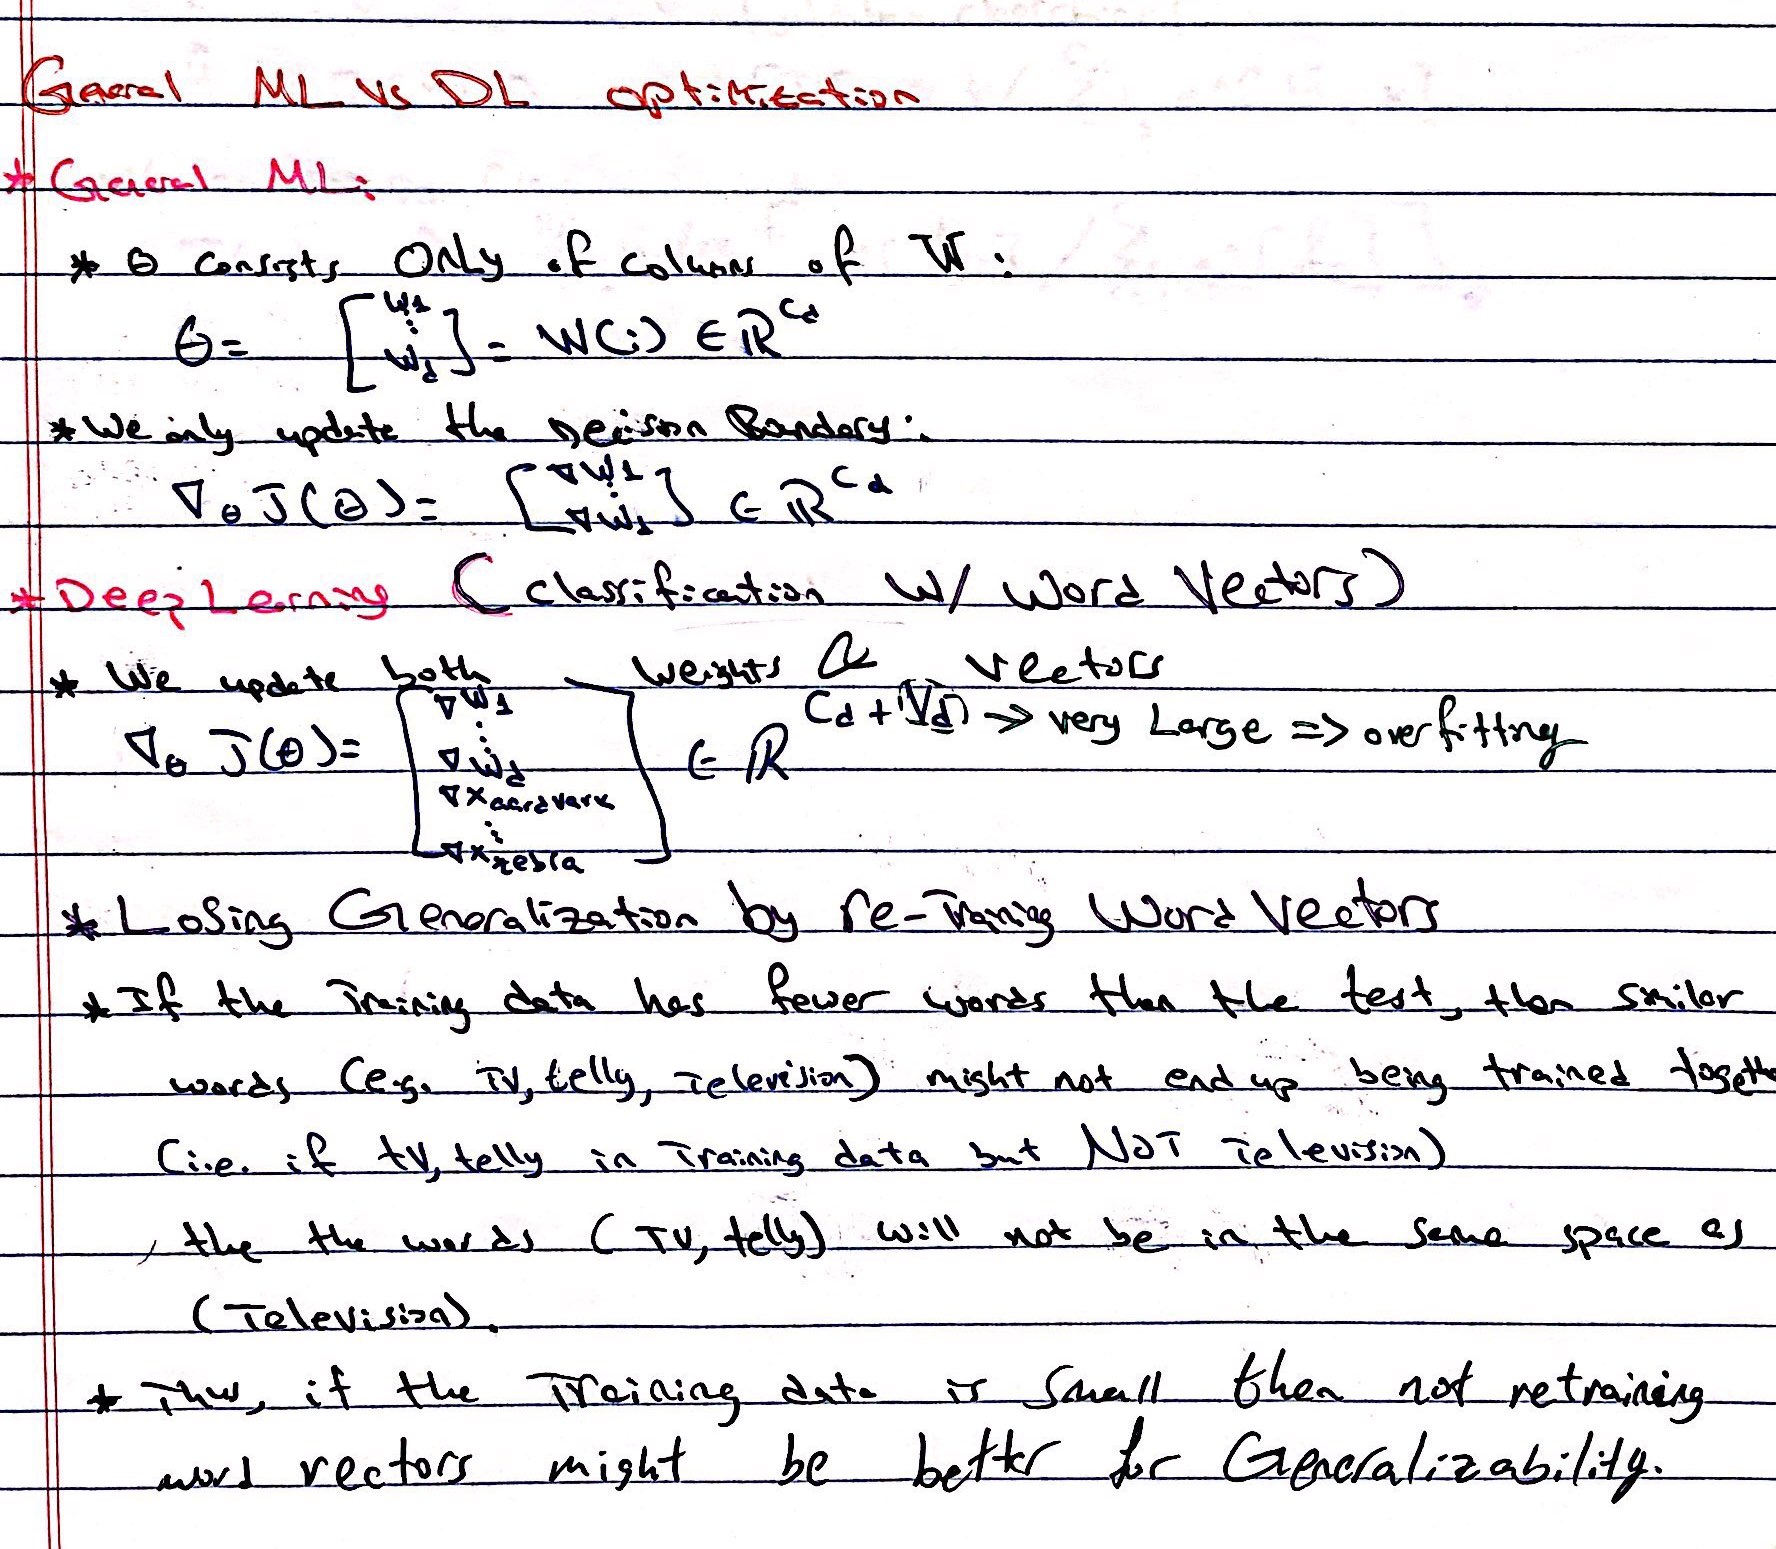 General ML vs DL optimization
* General ML:
* Θ consists ONLY of columns of W:
Θ = [W1 ⋮ Wd] = W(:) ∈ ℝ^Cd
* We only update the Decision Boundary:
∇Θ J(Θ) = [∇W1 ⋮ ∇Wd] ∈ ℝ^Cd
* Deep Learning (classification w/ word Vectors)
* We update both weights & vectors
∇Θ J(Θ) = [∇W1 ⋮ ∇Wd ∇Xaardvark ⋮ ∇Xzebra] ∈ ℝ^Cd+(Vd) → very Large => overfitting
* Losing Generalization by re-Training Word Vectors
* If the Training data has fewer words than the test, then similar
words (e.g. TV, telly, Television) might not end up being trained togethe
(i.e. if tv, telly in Training data but NOT Television)
, the the words (TV, telly) will not be in the same space as
(Television).
* Thus, if the Training data is small then not retraining
word vectors might be better for Generalizability.